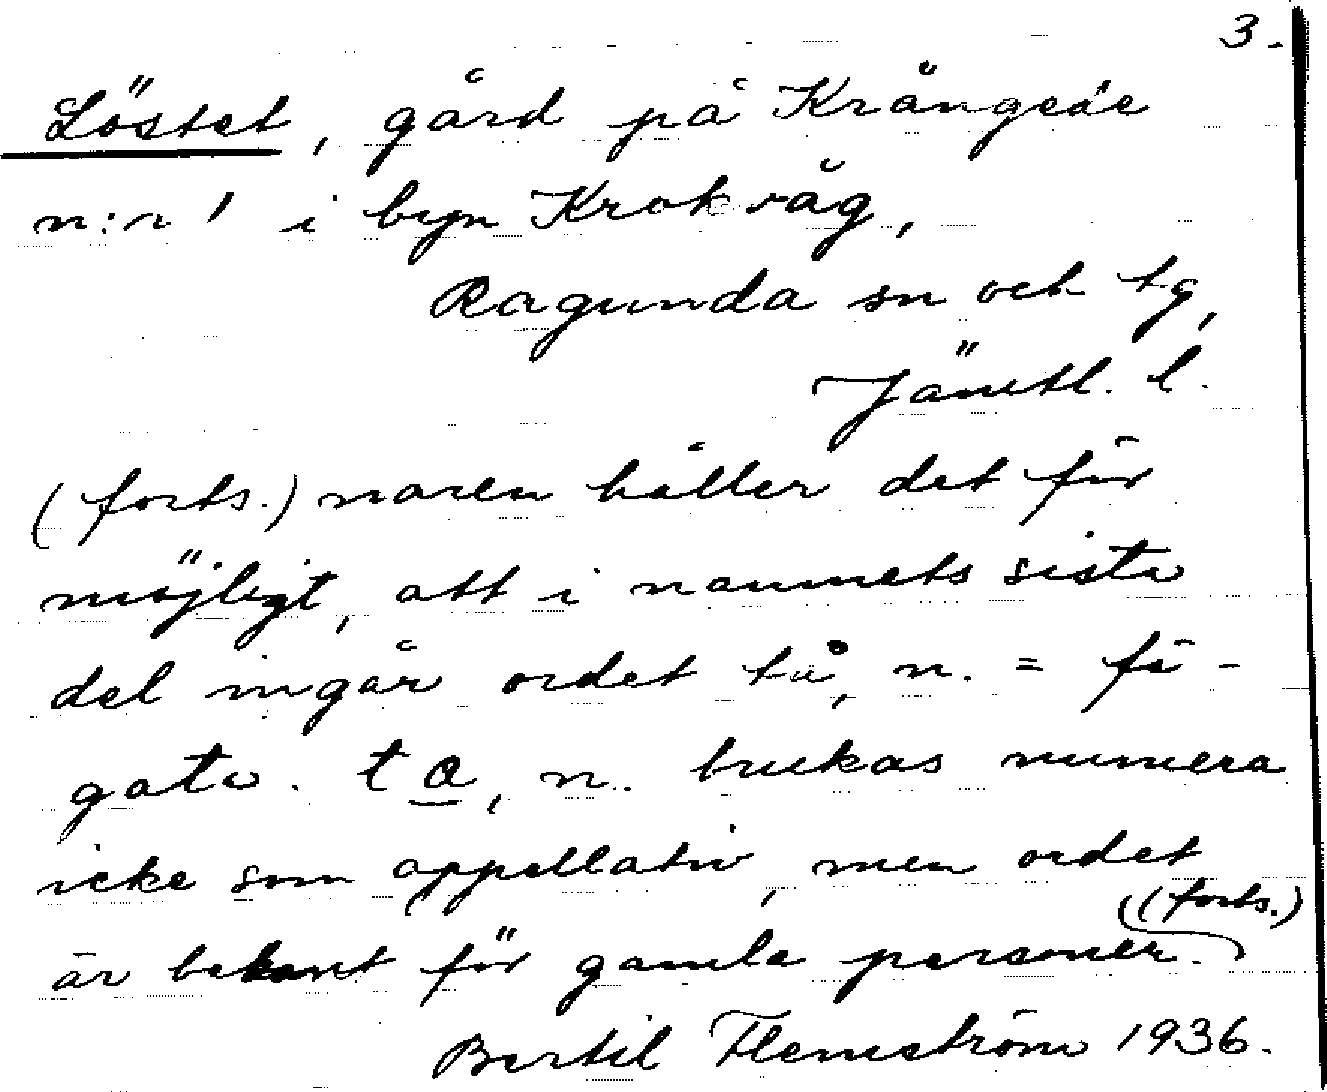 3.
Löstet, gård på Krångede
n:r 1 i byn Krokvåg,
Ragunda sn och tg,
Jämtl. l.
(forts.) naren håller det för
möjligt, att i namnets sista
del ingår ordet tå, n. = fä-
gata. ta, n. brukas numera
icke som appellativ, men ordet
(forts.)
är bekant för gamla personer.
Bertil Flemström 1936.